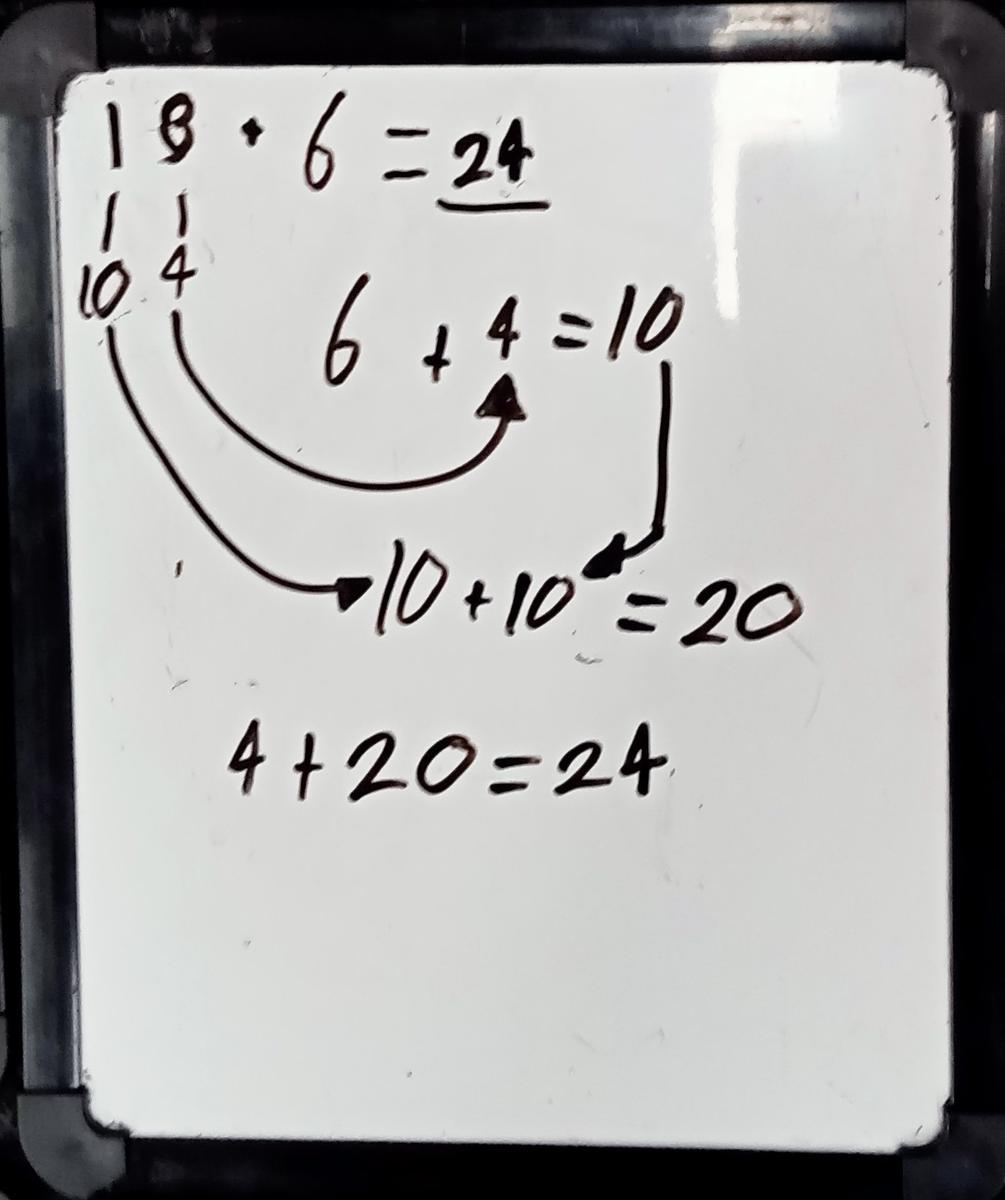 18 + 6 = 24
10 4
6 + 4 = 10
10 + 10 = 20
4 + 20 = 24